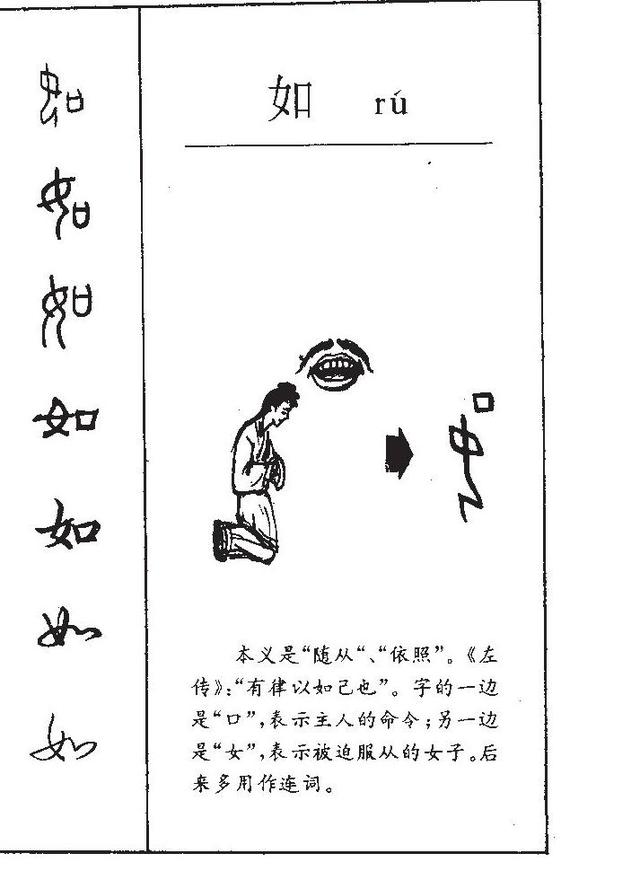 如 rú
本义是“随从“、“依照”。《左
传》:“有律以如己也”。字的一边
是“口”,表示主人的命令;另一边
是“女”,表示被迫服从的女子。后
来多用作连词。
如
如
如
如
如
如
如